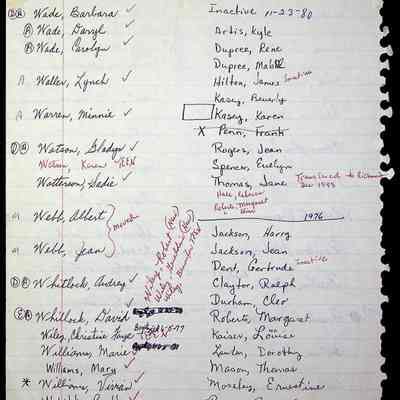 DA Wade, Barbara ✓
A Wade, Daryl ✓
A Wade, Carolyn ✓
A Waller, Lynch ✓
A Warren, Minnie ✓
DA Watson, Gladys ✓
Watson, Karen TEEN
Watterson, Sadie ✓
A Webb, Albert
moved
A Webb, Jean
DA Whitlock, Audrey ✓
EA Whitlock, David ✓
Wiley, Christine Faye 6-5-77
TEEN
Williams, Marie ✓
Williams, Mary ✓
* Williams, Vivian ✓
Wiley, Robert (New)
Wiley, (New)
Wiley,
Inactive 11-23-80
Artis, Kyle
Dupree, Rene
Dupree, Mable
Hilton, James Inactive
Kasey, Beverly
Kasey, Karen
X Penn, Frank
Rogers, Jean
Spencer, Evelyn
Thomas, Jane Transferred to Richmond
Dec 1983
Hale, Rebecca
Roberts, Margaret
1976
Jackson, Harry
Jackson, Jean
Dent, Gertrude Inactive
Claytor, Ralph
Durham, Cleo
Roberts, Margaret
Kaiser, Louise
Lawton, Dorothy
Mason, Thomas
Moseley, Ernestine